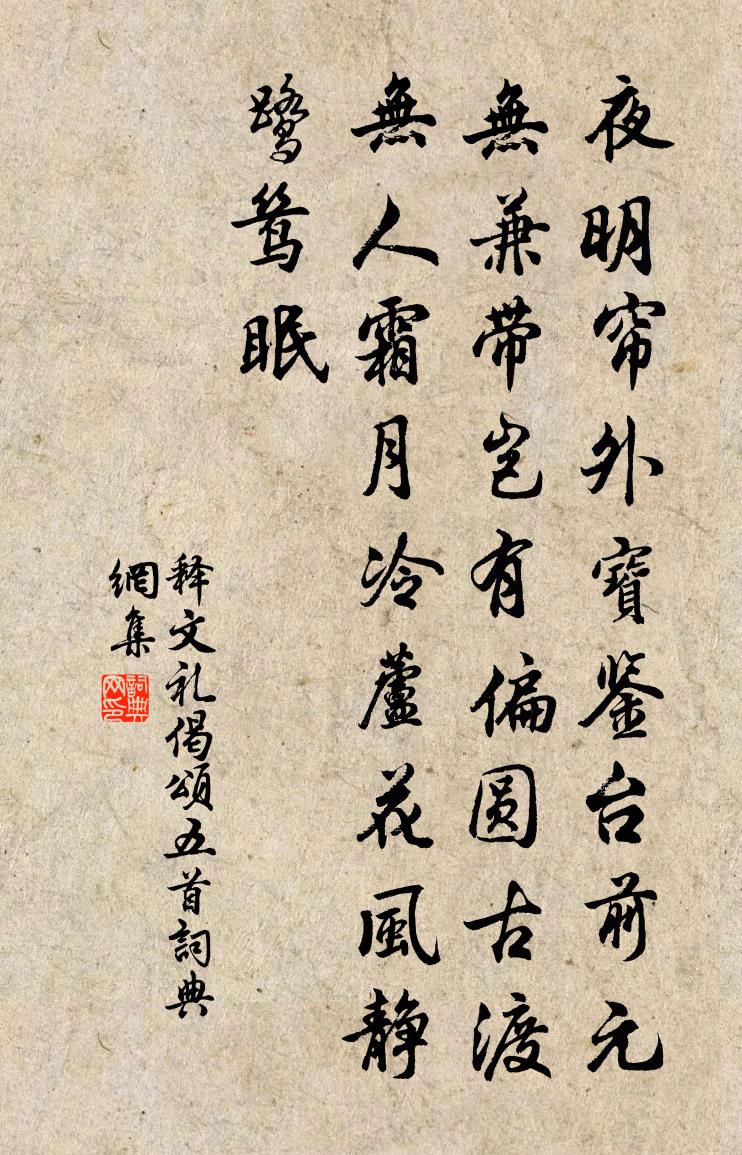 夜明帘外寶鉴台前元
無兼带岂有偏圆古渡
無人霜月冷蘆花風静
鹭鸶眠
释文礼偈頌五首詞典
網集
詞典
网印